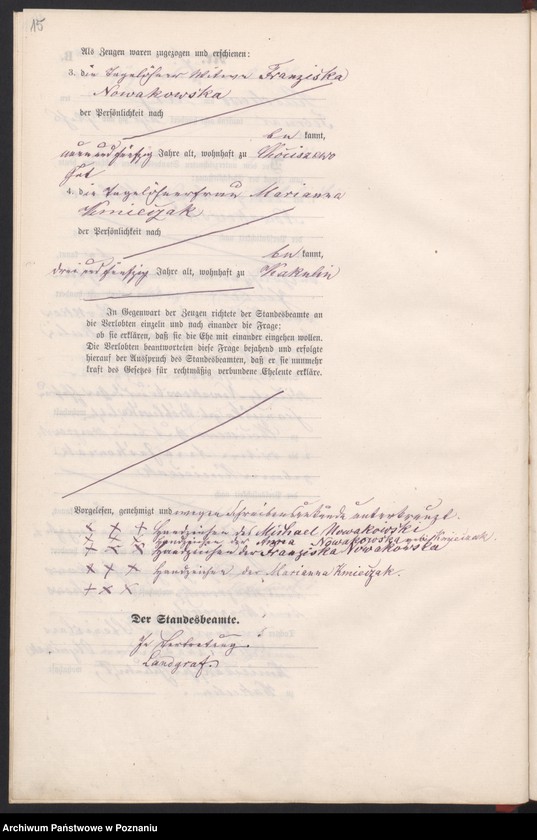 15
Als Zeugen waren zugezogen und erschienen:
3. die Tagelöhner Witwe Franziska
Nowakowska
der Persönlichkeit nach
be kannt,
neun und fünfzig Jahre alt, wohnhaft zu
Gut
4. die Tagelöhnerfrau Marianna
Kmieczak
der Persönlichkeit nach
be kannt,
drei und fünfzig Jahre alt, wohnhaft zu Kakulin
In Gegenwart der Zeugen richtete der Standesbeamte an
die Verlobten einzeln und nach einander die Frage:
ob sie erklären, daß sie die Ehe mit einander eingehen wollen.
Die Verlobten beantworteten diese Frage bejahend und erfolgte
hierauf der Ausspruch des Standesbeamten, daß er sie nunmehr
kraft des Gesetzes für rechtmäßig verbundene Eheleute erkläre.
Vorgelesen, genehmigt und wegen Schreibensunkunde unterkreuzt.
x x + Handzeichen des Michael Nowakowski
x x x Handzeichen der Anna Nowakowska geb.
+ x x Handzeichen der Franziska Nowakowska
x x x Handzeichen der Marianna Kmieczak.
+ x x
Der Standesbeamte.
In Vertretung.
Landgraf.
Archiwum Państwowe w Poznaniu